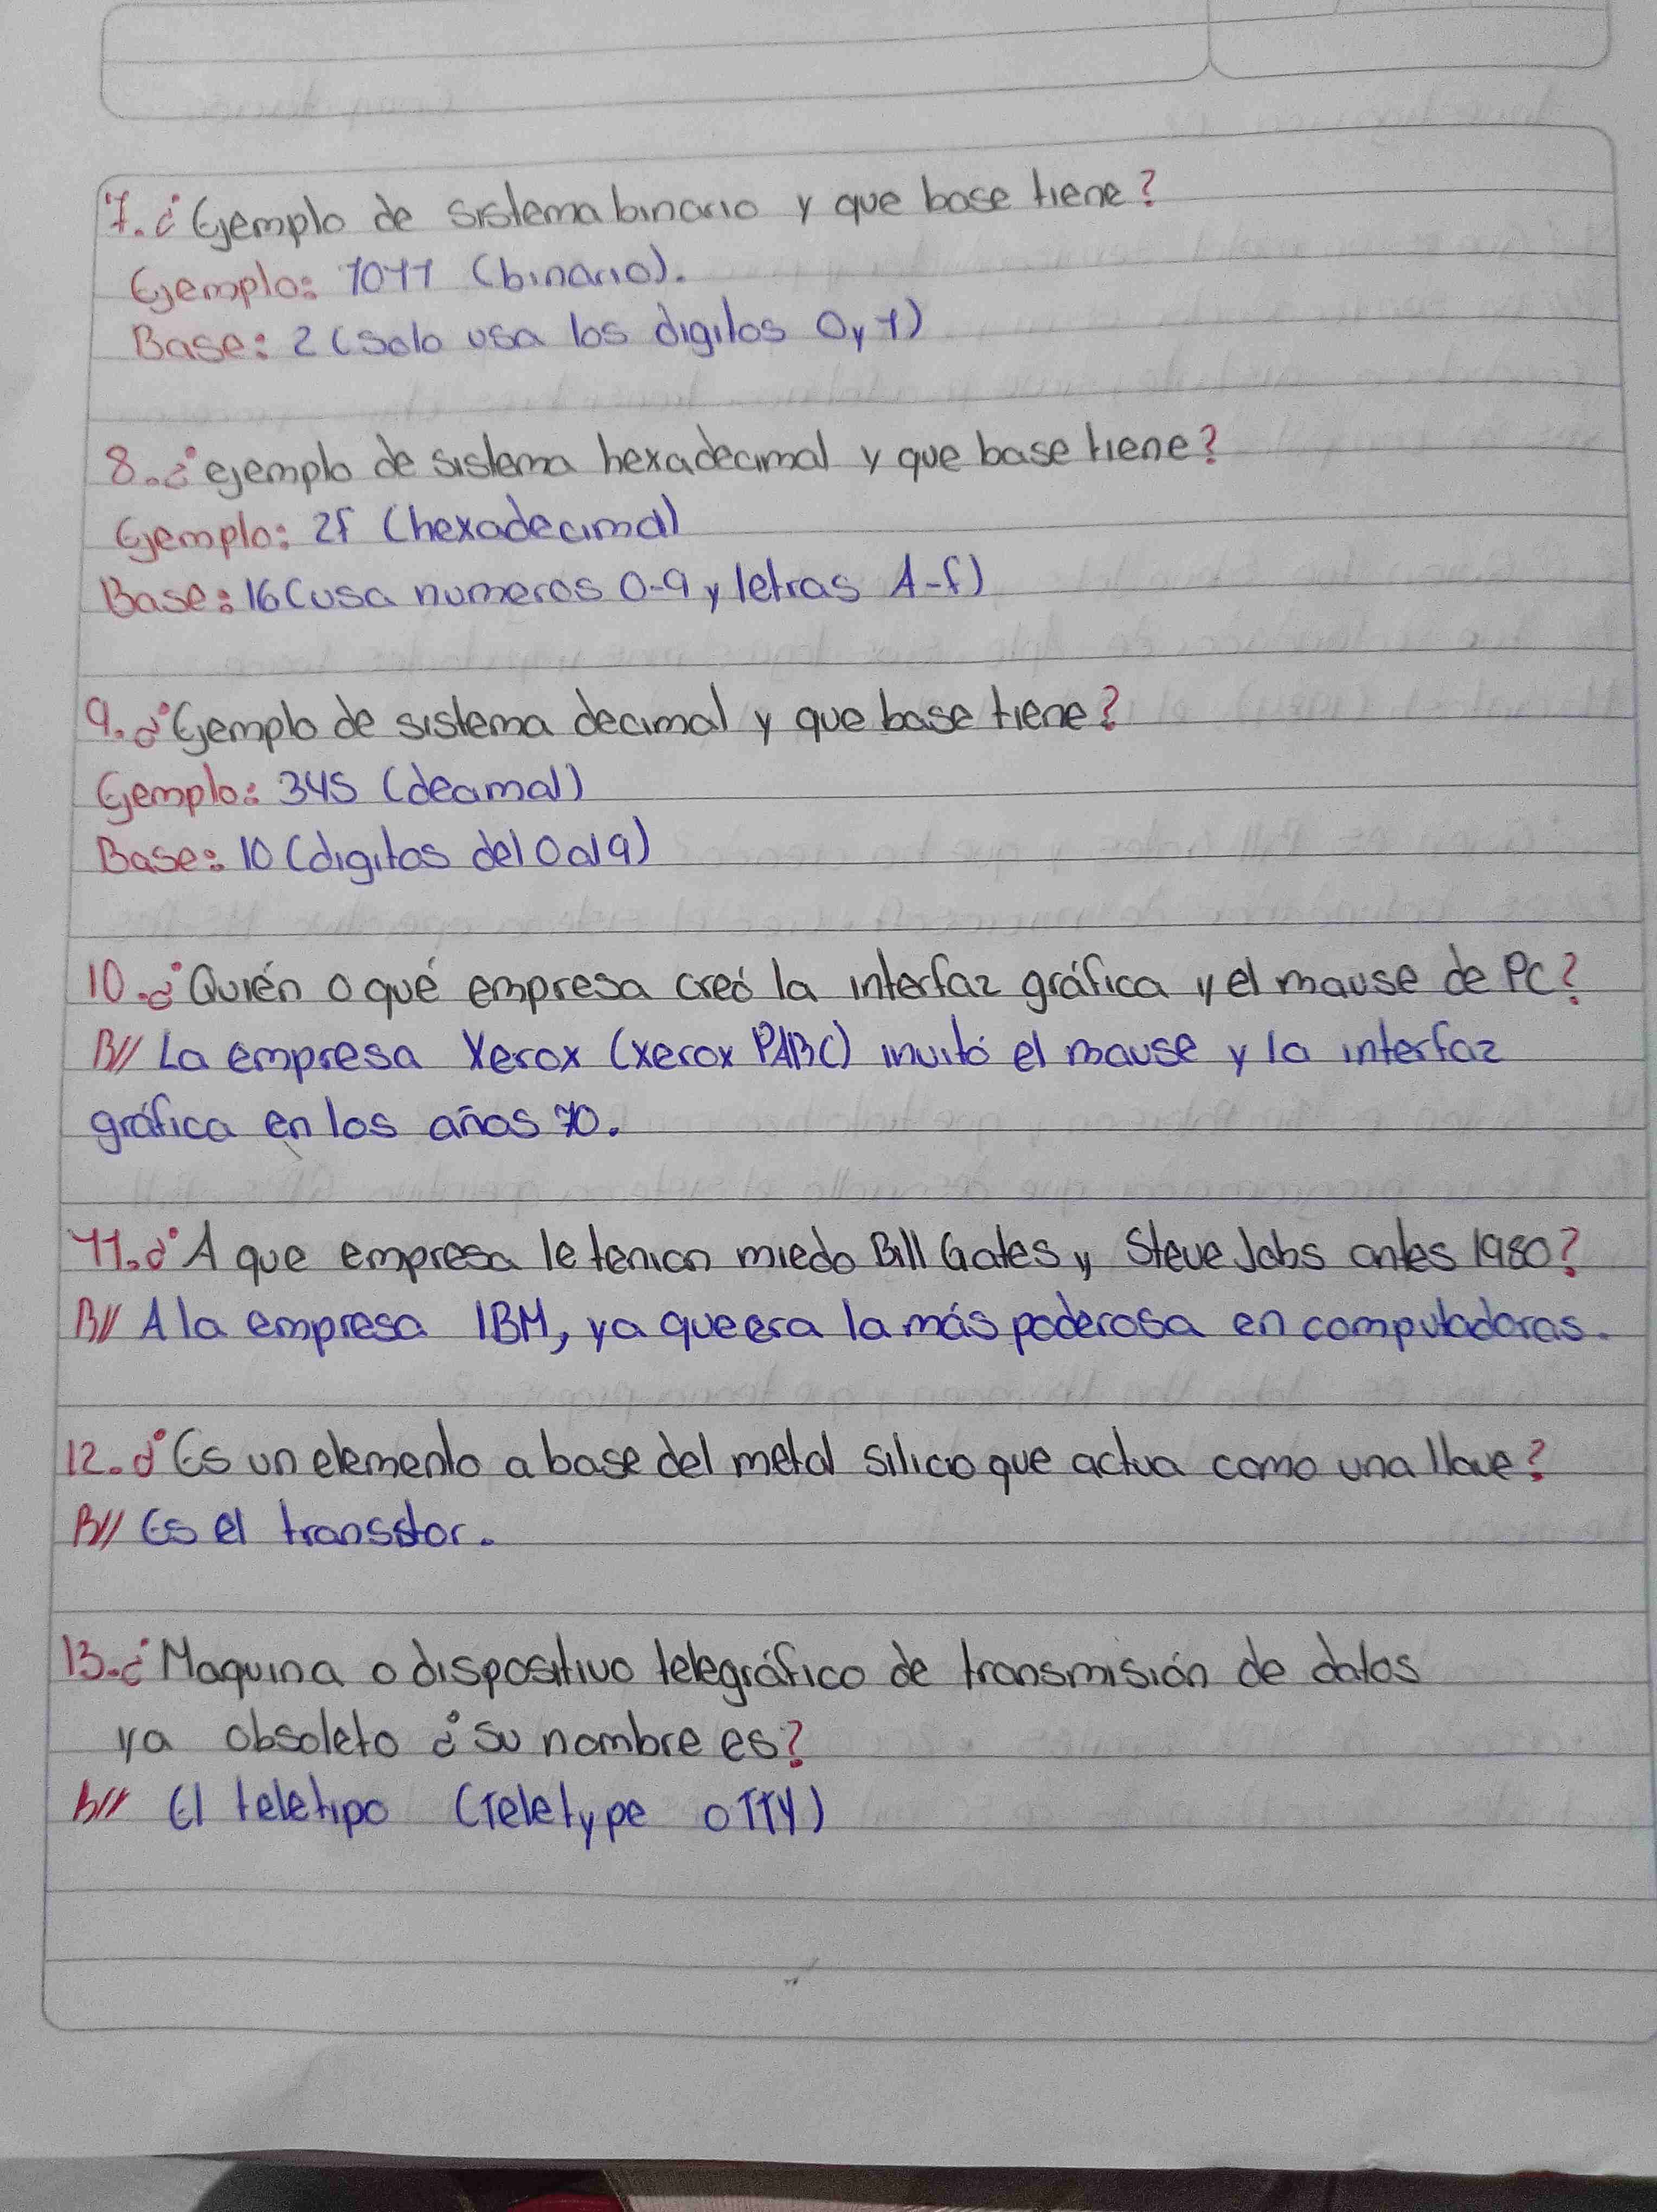 7. ¿Ejemplo de sistema binario y que base tiene?
Ejemplo: 1011 (binario).
Base: 2 (solo usa los digitos 0 y 1)
8. ¿ejemplo de sistema hexadecimal y que base tiene?
Ejemplo: 2f (hexadecimal)
Base: 16 (usa numeros 0-9 y letras A-f)
9. ¿Ejemplo de sistema decimal y que base tiene?
Ejemplo: 345 (decimal)
Base: 10 (digitos del 0 al 9)
10. ¿Quién o qué empresa creó la interfaz gráfica y el mause de PC?
R// La empresa Xerox (xerox PARC) invitó el mause y la interfaz
gráfica en los años 70.
11. ¿A que empresa le tenian miedo Bill Gates y Steve Jobs antes 1980?
R// A la empresa IBM, ya que era la más poderosa en computadoras.
12. ¿Es un elemento a base del metal silicio que actua como una llave?
R// Es el transstor.
13. ¿Maquina o dispositivo telegráfico de transmisión de datos
ya obsoleto ¿su nombre es?
R// El teletipo (Teletype o TTY)